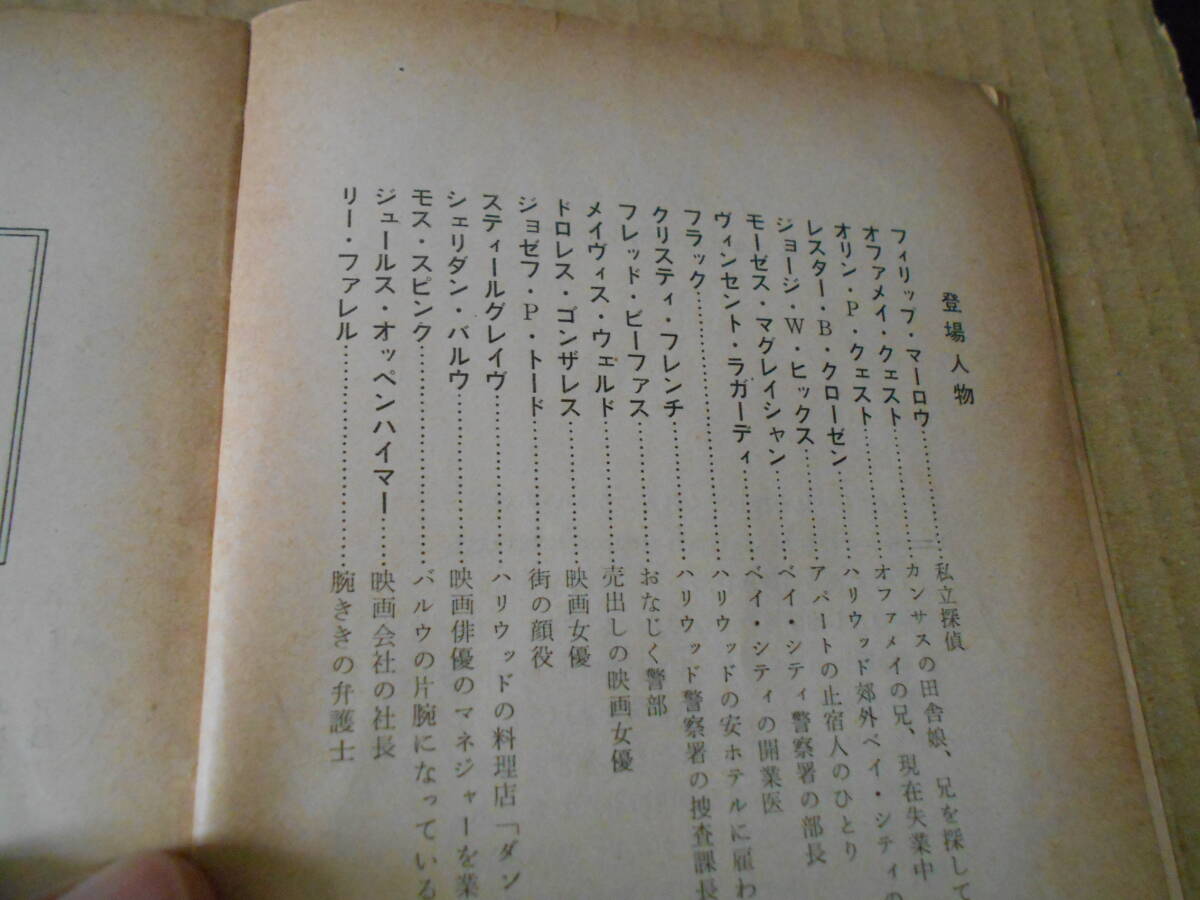 登場人物
フィリップ・マーロウ……………私立探偵
オファメイ・クェスト……………カンサスの田舎娘、兄を探して
オリン・P・クェスト……………オファメイの兄、現在失業中
レスター・B・クローゼン…………ハリウッド郊外ベイ・シティの
ジョージ・W・ヒックス…………アパートの止宿人のひとり
モーゼス・マグレイシャン…………ベイ・シティ警察署の部長
ヴィンセント・ラガーディ…………ベイ・シティの開業医
フラック……………………………ハリウッドの安ホテルに雇わ
クリスティ・フレンチ……………ハリウッド警察署の捜査課長
フレッド・ビーファス……………おなじく警部
メイヴィス・ウェルド……………売出しの映画女優
ドロレス・ゴンザレス……………映画女優
ジョゼフ・P・トード……………街の顔役
スティールグレイヴ………………ハリウッドの料理店「ダン
シェリダン・バルウ………………映画俳優のマネジャーを業
モス・スピンク……………………バルウの片腕になっている
ジュールス・オッペンハイマー……映画会社の社長
リー・ファレル……………………腕ききの弁護士